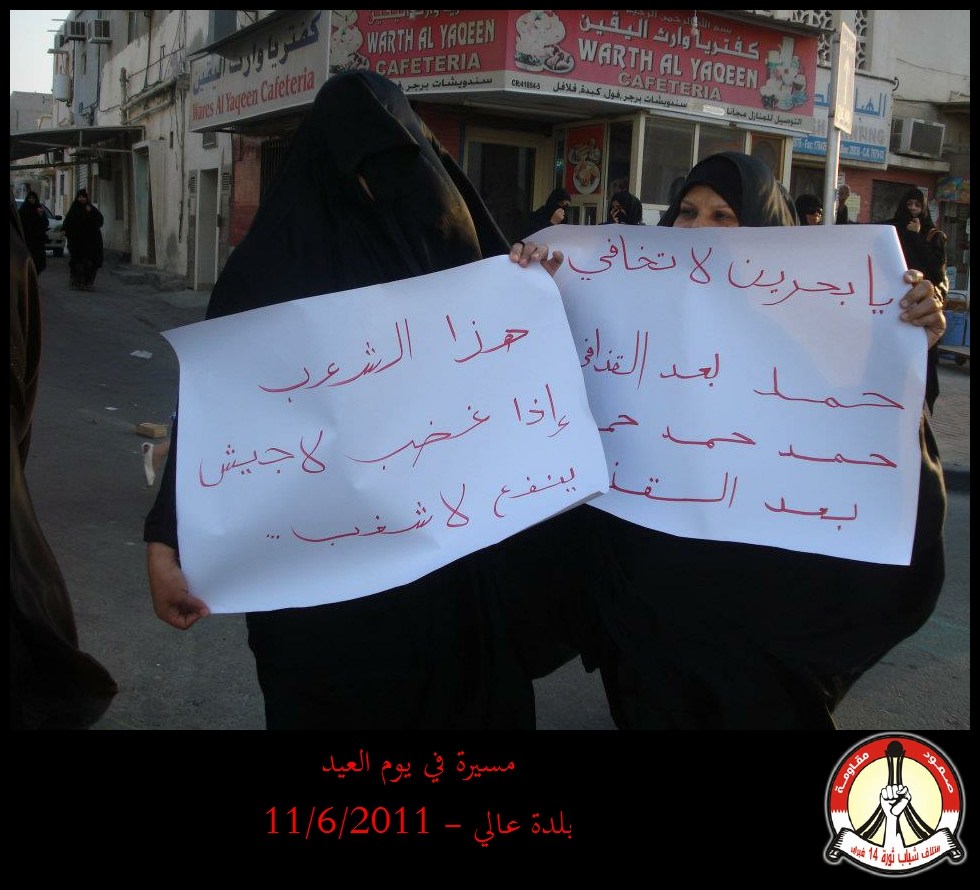 كفتريا وارث اليقين
Wares Al Yaqeen Cafeteria
WARTH AL YAQEEN
CAFETERIA
سندويشات برجر
كفتريا وارث اليقين
WARTH AL YAQEEN
CAFETERIA
CR:41806-5
سندويشات برجر فول كبدة فلافل
التوصيل للمنازل مجانا
هذا الشعب
إذا غضب لا جيش
ينفع لا شغب ...
يا بحرين لا تخافي
حمد بعد القذافي
حمد حمد حمـ
بعد القذ
مسيرة في يوم العيد
بلدة عالي – 11/6/2011
صمود
مقاومة
ائتلاف شباب ثورة 14 فبراير